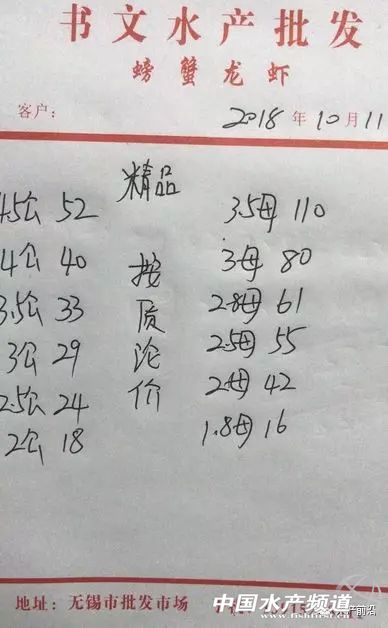 书文水产批发
螃蟹龙虾
客户: 2018年10月11
精品
4.5公 52
4公 40
3.5公 33
3公 29
2.5公 24
2公 18
按质论价
3.5母 110
3母 80
2.8母 61
2.5母 55
2母 42
1.8母 16
地址: 无锡市批发市场
中国水产频道
www.fishfirst.cn
水产前沿